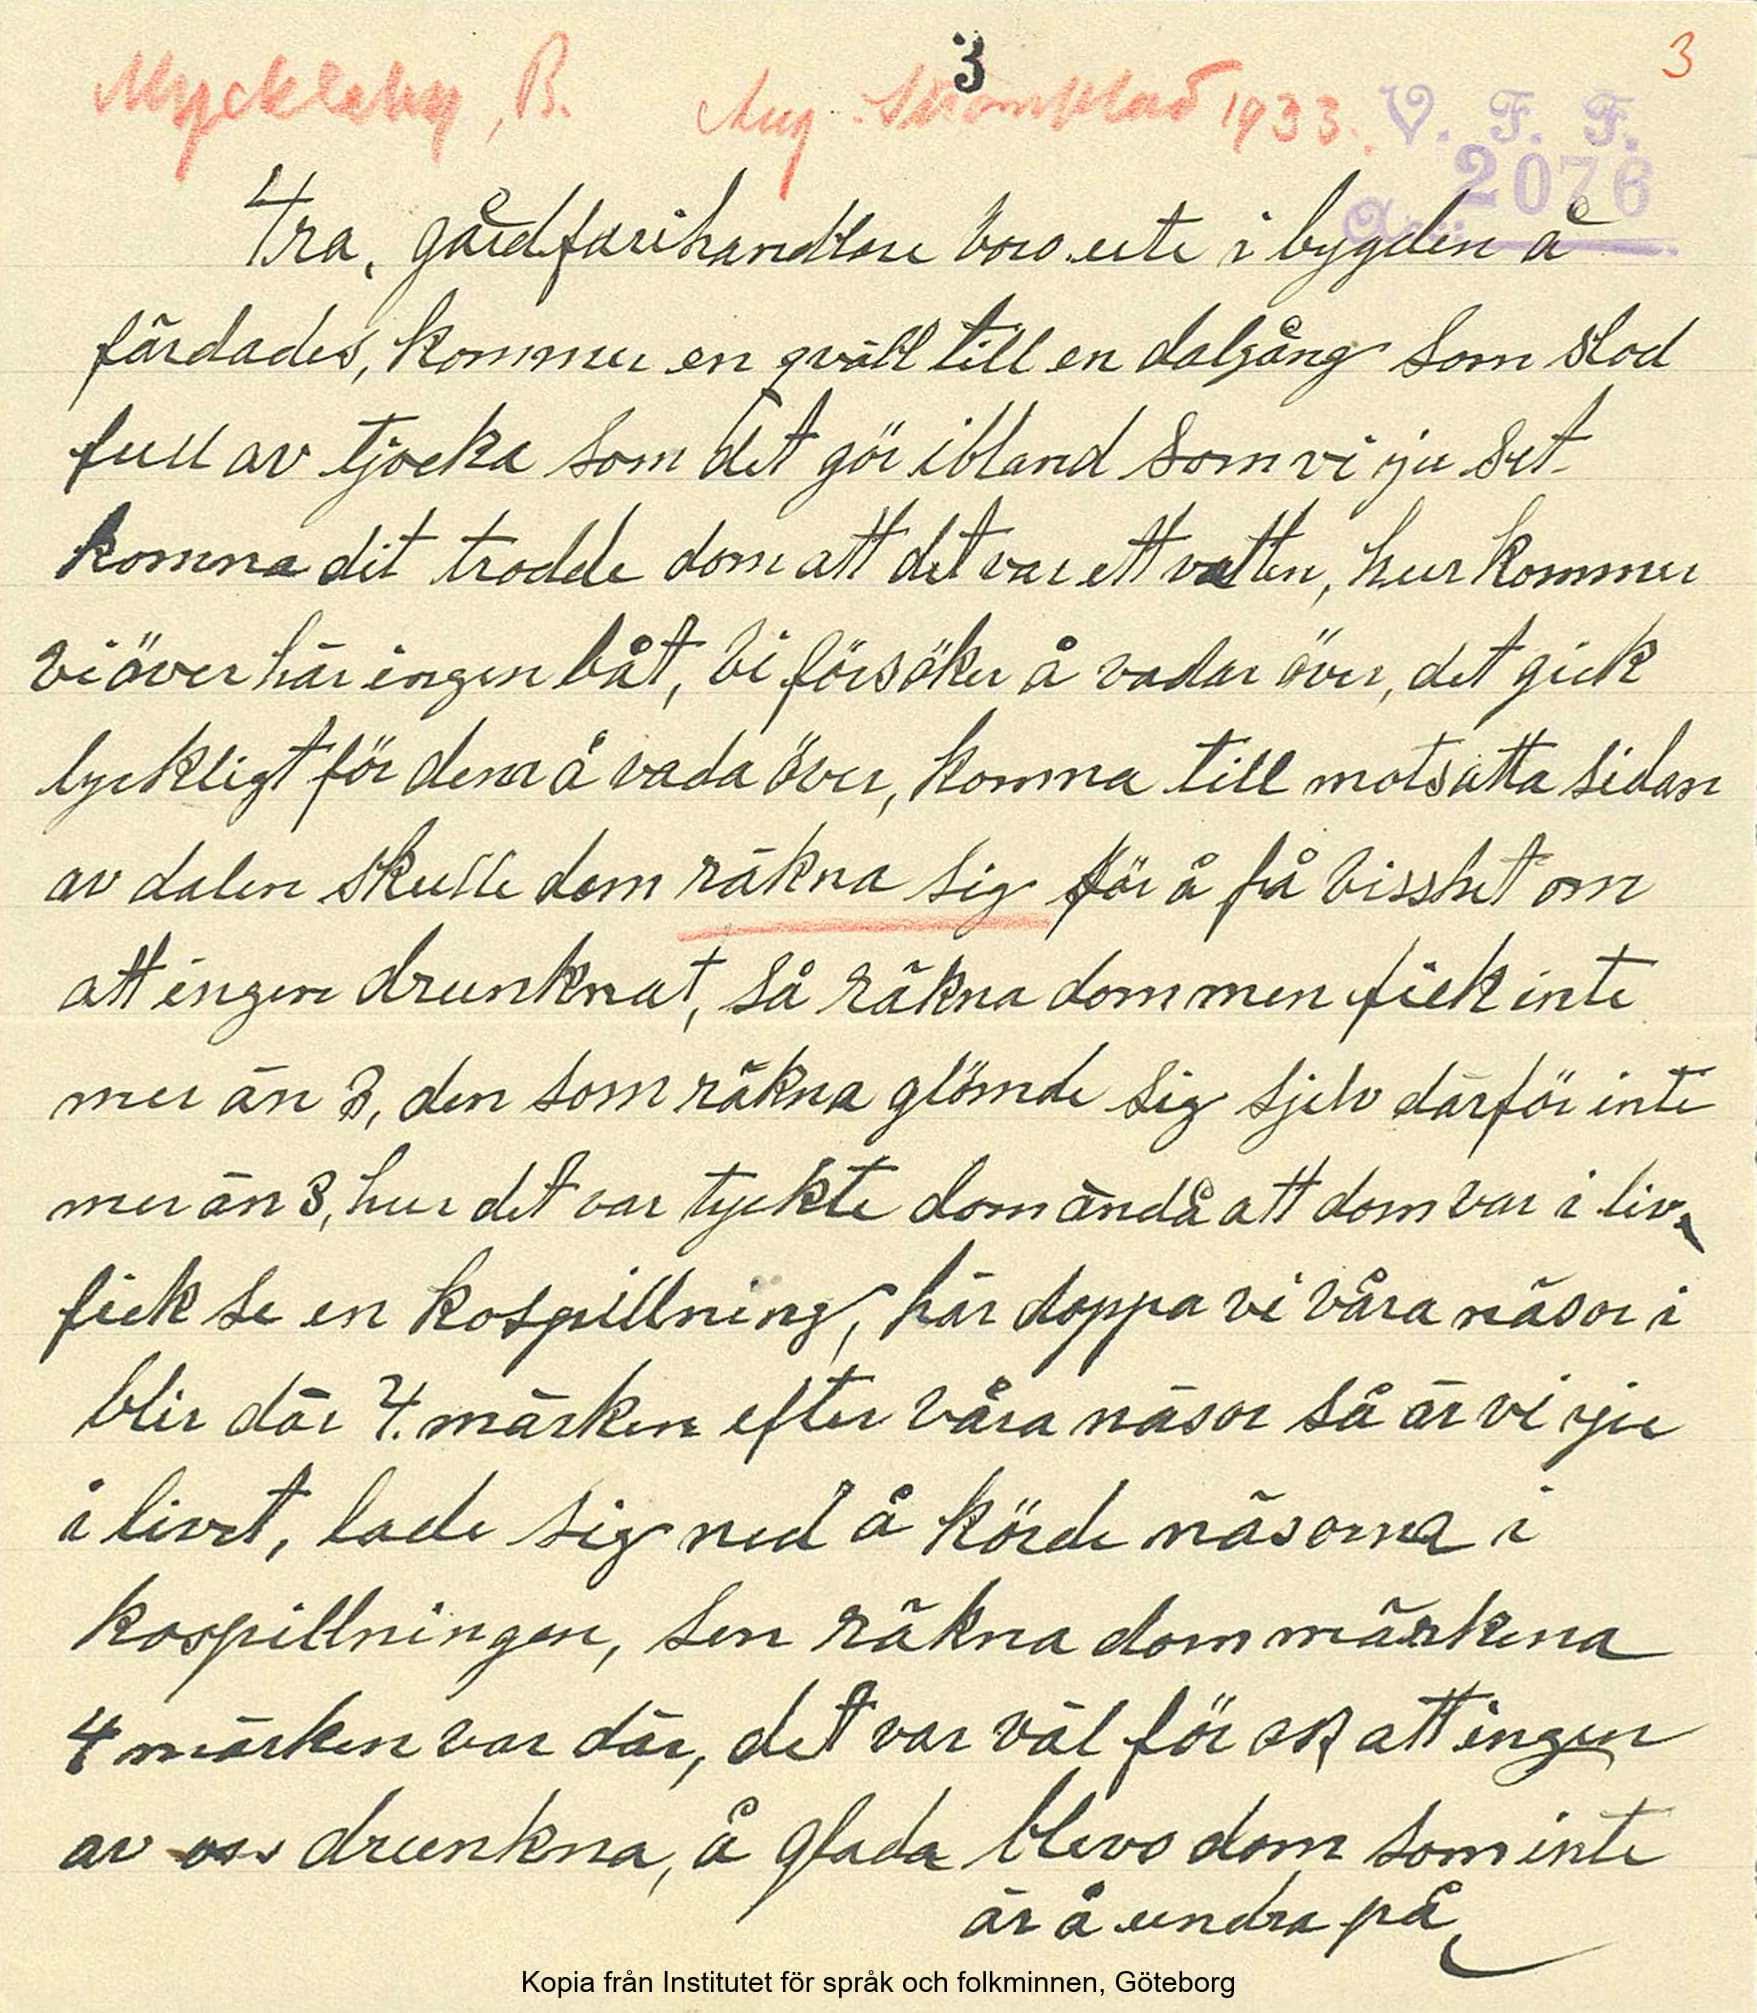 3
3
Myckleby, B. Aug. Strömblad 1933.
V. F. F.
2076
4ra, gårdfarihandlare voro ute i bygden å
färdades, kommer en qväll till en dalgång som stod
full av tjocka som det gör ibland som vi ju set
komna dit trodde dom att det var ett vatten, hur kommer
vi över här ingen båt, vi försöker å vadar över, det gick
lyckligt för dem å vada över, komna till motsatta sidan
av dalen skulle dom räkna sig för å få visshet om
att ingen drunknat, så räkna dom men fick inte
mer än 3, den som räkna glömde sig sjelv därför inte
mer än 3, hur det var tyckte dom ändå att dom var i liv,
fick se en kospillning, här doppa vi våra näsor i
blir där 4. märken efter våra näsor så är vi ju
i livet, lade sig ned å körde näsorna i
kospillningen, sen räkna dom märkena
4 märken var där, det var väl för oss att ingen
av oss drunkna, å glada blevo dom som inte
är å undra på
Kopia från Institutet för språk och folkminnen, Göteborg